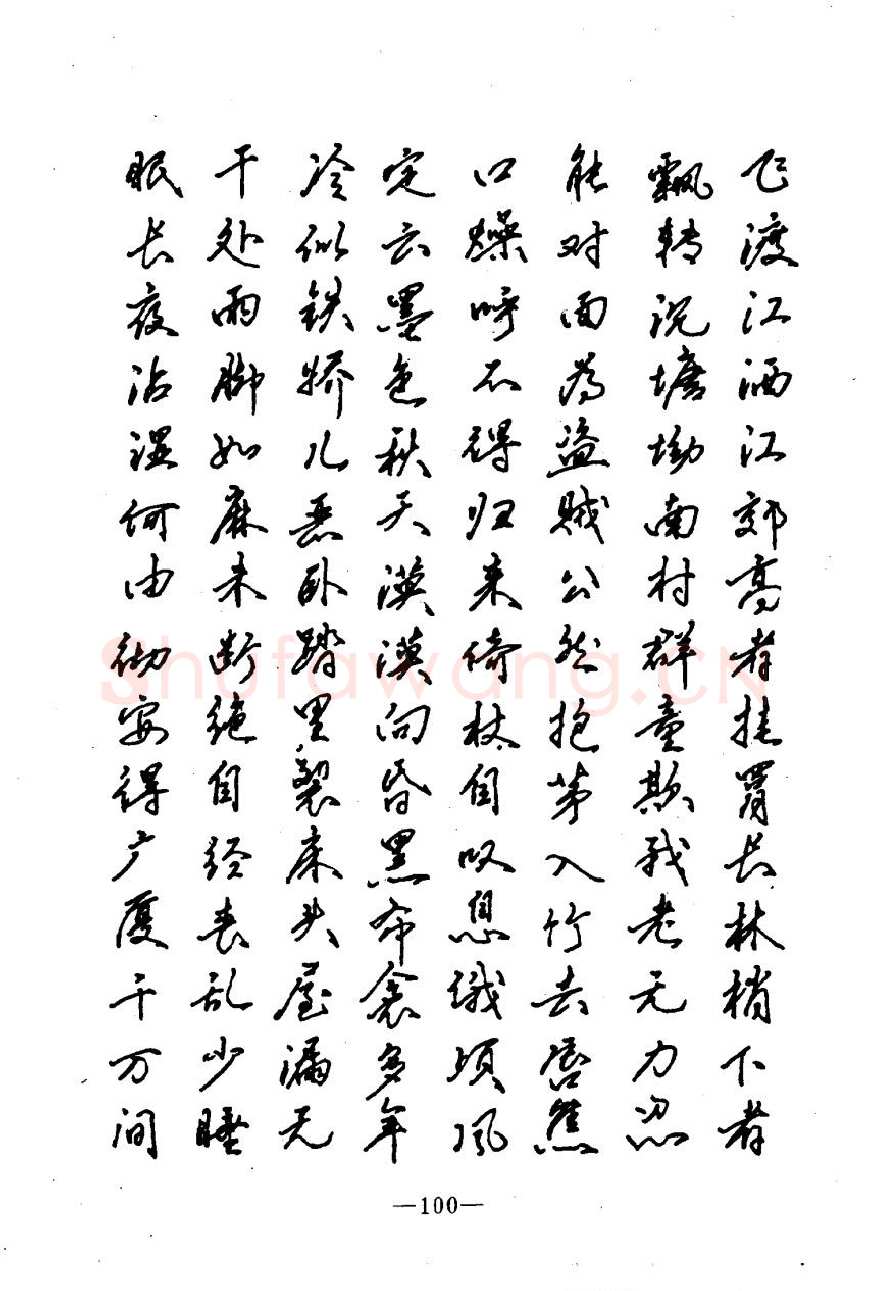 飞渡江洒江郊高者挂罥长林梢下者
飘转沉塘坳南村群童欺我老无力忍
能对面为盗贼公然抱茅入竹去唇焦
口燥呼不得归来倚杖自叹息俄顷风
定云墨色秋天漠漠向昏黑布衾多年
冷似铁娇儿恶卧踏里裂床头屋漏无
干处雨脚如麻未断绝自经丧乱少睡
眠长夜沾湿何由彻安得广厦千万间
—100—
Shufawang.CN